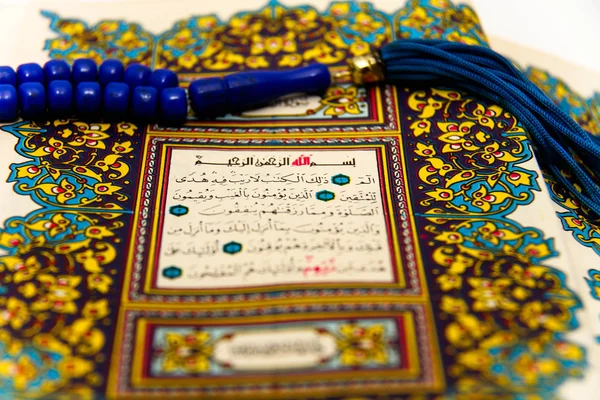 بِسْمِ اللَّهِ الرَّحْمَٰنِ الرَّحِيمِ
الٓمٓ ذَٰلِكَ الْكِتَابُ لَا رَيْبَ فِيهِ هُدًى
لِلْمُتَّقِينَ الَّذِينَ يُؤْمِنُونَ بِالْغَيْبِ وَيُقِيمُونَ
الصَّلٰوةَ وَمِمَّا رَزَقْنَاهُمْ يُنْفِقُونَ
وَالَّذِينَ يُؤْمِنُونَ بِمَا أُنْزِلَ إِلَيْكَ وَمَا أُنْزِلَ مِنْ
قَبْلِكَ وَبِالْآخِرَةِ هُمْ يُوقِنُونَ أُولَٰئِكَ عَلَىٰ
هُدًى مِنْ رَبِّهِمْ وَأُولَٰئِكَ هُمُ الْمُفْلِحُونَ